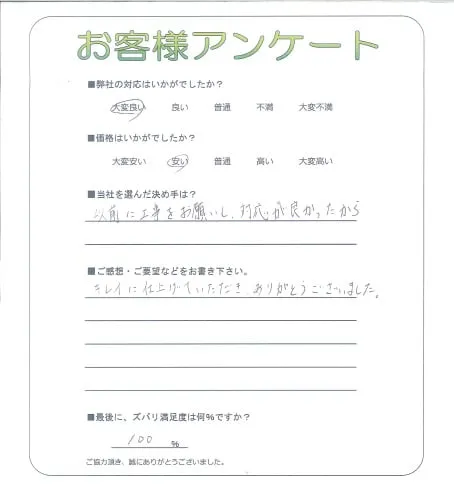 お客様アンケート
■弊社の対応はいかがでしたか？
大変良い 良い 普通 不満 大変不満
■価格はいかがでしたか？
大変安い 安い 普通 高い 大変高い
■当社を選んだ決め手は？
以前に工事をお願いし、対応が良かったから
■ご感想・ご要望などをお書き下さい。
キレイに仕上げていただき ありがとうございました。
■最後に、ズバリ満足度は何％ですか？
100 ％
ご協力頂き、誠にありがとうございました。